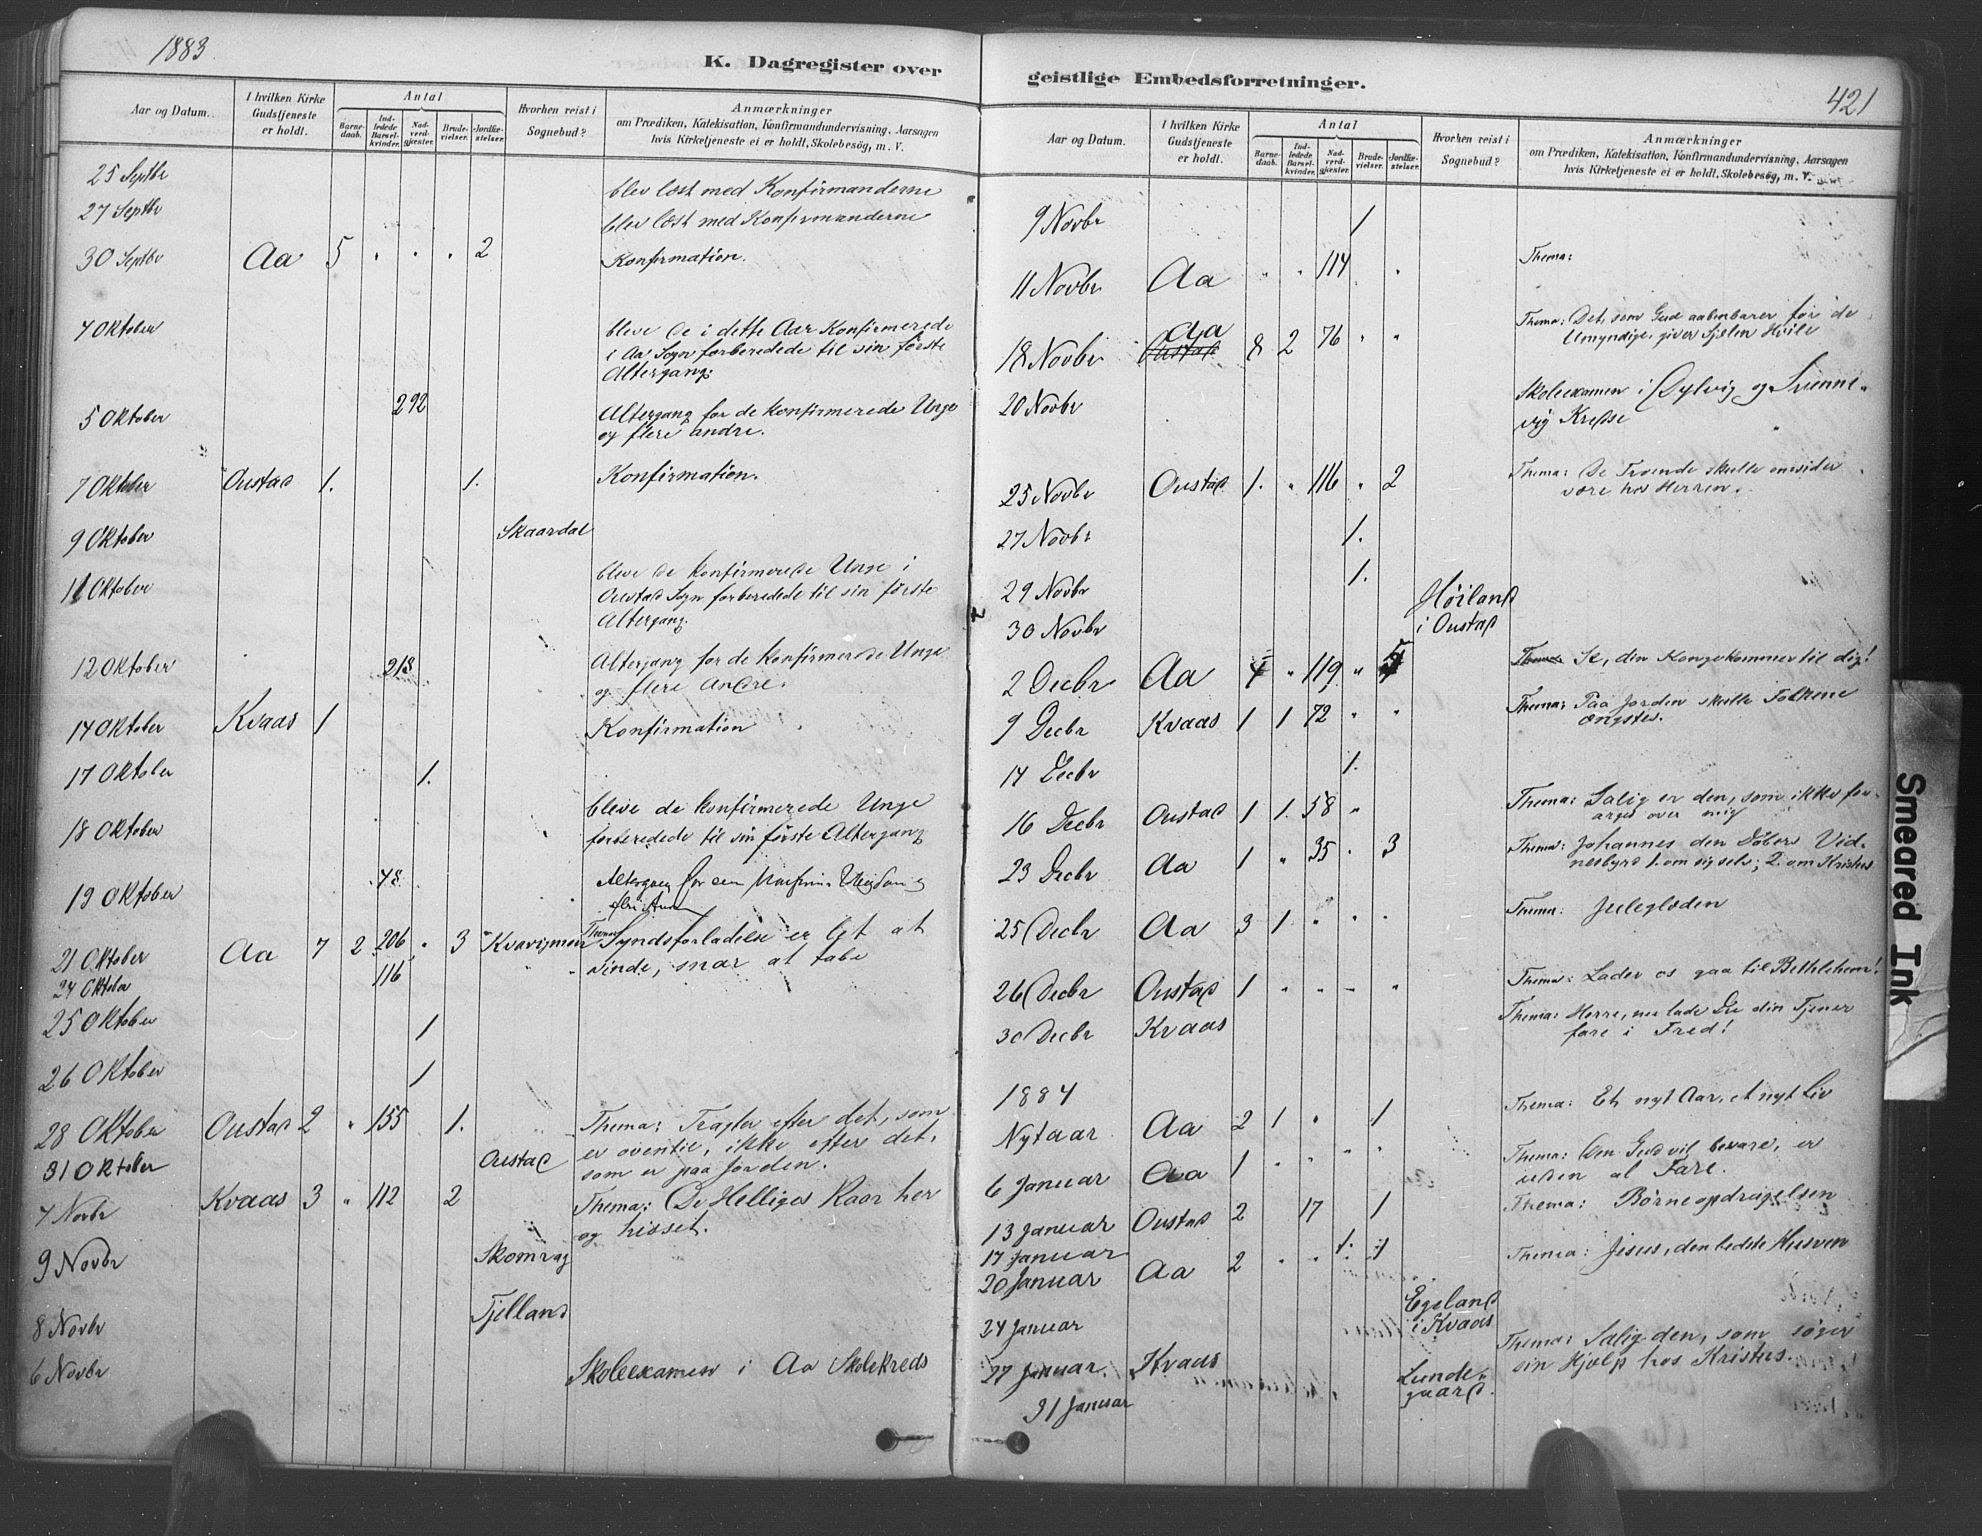 1883
K. Dagregister over
Aar og Datum.
I hvilken Kirke Gudstjeneste er holdt.
Antal
Barnedaab.
Indledede Barselkvinder.
Nadverdgjester.
Brudevielser.
Jordfæstelser.
Hvorhen reist i Sognebud?
Anmærkninger
om Prædiken, Katekisation, Konfirmandundervisning, Aarsagen
hvis Kirketjeneste ei er holdt, Skolebesög, m. V.
25 Septbr blev læst med Konfirmanderne
27 Septbr blev læst med Konfirmanderne
30 Septbr Aa 5 " " " 2 Konfirmation.
4 Oktober bleve de i dette Aar Konfirmerede
i Aa Sogn forberedede til sin første
Altergang.
5 Oktober 292 Altergang for de konfirmerede Unge
og flere andre.
7 Oktober Oustad 1. 1. Konfirmation.
9 Oktober Skaardal
11 Oktober bleve de konfirmerede Unge i
Oustad Sogn forberedede til sin første
Altergang.
12 Oktober 218 Altergang for de konfirmerede Unge
og flere Andre.
14 Oktober Kvaas 1 Konfirmation
17 Oktober 1.
18 Oktober bleve de konfirmerede Unge
forberedede til sin første Altergang
19 Oktober 48 Altergang for
21 Oktober Aa 7 2 206 " 3 Thema: Syndsforladelse er let at
vinde, snar at tabe
24 Oktober 116
25 Oktober 1
26 Oktober 1
28 Oktober Oustad 2 " 155 1. Thema: Tragter efter det, som
er oventil, ikke efter det,
som er paa Jorden.
31 Oktober Oustad
4 Novbr Kvaas 3 " 112 2 Thema: De Helliges Kaar her
og hisset.
9 Novbr Skomrag
8 Novbr Tjelland
6 Novbr Skoleexamen i Aa Skolekreds
geistlige Embedsforretninger.
421
Aar og Datum.
I hvilken Kirke Gudstjeneste er holdt.
Antal
Barnedaab.
Indledede Barselkvinder.
Nadverdgjester.
Brudevielser.
Jordfæstelser.
Hvorhen reist i Sognebud?
Anmærkninger
om Prædiken, Katekisation, Konfirmandundervisning, Aarsagen
hvis Kirketjeneste ei er holdt, Skolebesög, m. V.
9 Novbr 1
11 Novbr Aa " " 114 " Thema:
18 Novbr Aa Oustad 8 2 76 " " Thema: Det, som Gud aabenbarer for de
Umyndige, giver Sjelen Hvile
20 Novbr Skoleexamen i Dylvig og Svenne-
vig Kredse
25 Novbr Oustad 1. " 116 " 2 Thema: De Troende skulle omsider
være hos Herren.
27 Novbr 1.
29 Novbr 1.
30 Novbr Høiland
i Oustad
2 Decbr Aa 4 " 119 " 5 Thema: Se, din Konge kommer til dig!
9 Decbr Kvaas 1 1 72 " " Thema: Paa Jorden skulle Folkene
ængstes.
14 Decbr 1.
16 Decbr Oustad 1 1. 58 " Thema: Salig er den, som ikke for-
arges over mig
23 Decbr Aa 1 " 35 " 3 Thema: Johannes den Døbers Vid-
nesbyrd 1. om sig selv; 2. om Kristus
25 Decbr Aa 3 1 " " " Thema: Juleglæden
26 Decbr Oustad 1 " " " " Thema: Lader os gaa til Bethlehem!
30 Decbr Kvaas Thema: Herre, nu lade Du din Tjener
fare i Fred!
1884
Nytaar Aa 2 1 " 1 Thema: Et nyt Aar, et nyt Liv
6 Januar Aa 1 " " " " Thema: Den Gud vil bevare, er
uden al Fare.
13 Januar Oustad 2 17 1 Thema: Børneopdragelsen
17 Januar 1.
20 Januar Aa 2 " " 1 Thema: Jesus, den bedste Husven
24 Januar Egeland
i Kvaas
27 Januar Kvaas Thema: Salig den, som søger
sin Hjælp hos Kristus.
31 Januar Lunde-
gaard.
Smeared Ink